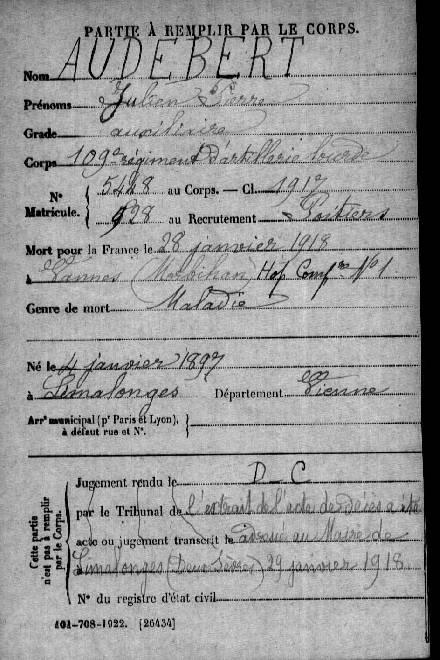 PARTIE À REMPLIR PAR LE CORPS.
Nom AUDEBERT
Prénoms Julien Pierre
Grade auxiliaire
Corps 109e régiment d'artillerie lourde
N° Matricule. 5428 au Corps. — Cl. 1917
928 au Recrutement Poitiers
Mort pour la France le 28 janvier 1918
à Vannes (Morbihan) Hop. Compre N°1
Genre de mort Maladie
Né le 4 janvier 1897
à Limalonges Département Vienne
Arrt municipal (pr Paris et Lyon),
à défaut rue et N°.
Cette partie n'est pas à remplir par le Corps.
Jugement rendu le D-C
par le Tribunal de l'extrait de l'acte de décès a été
acte ou jugement transcrit le adressé au Maire de
Limalonges (Deux Sèvres) 29 janvier 1918
N° du registre d'état civil
101-708-1922. [26434]